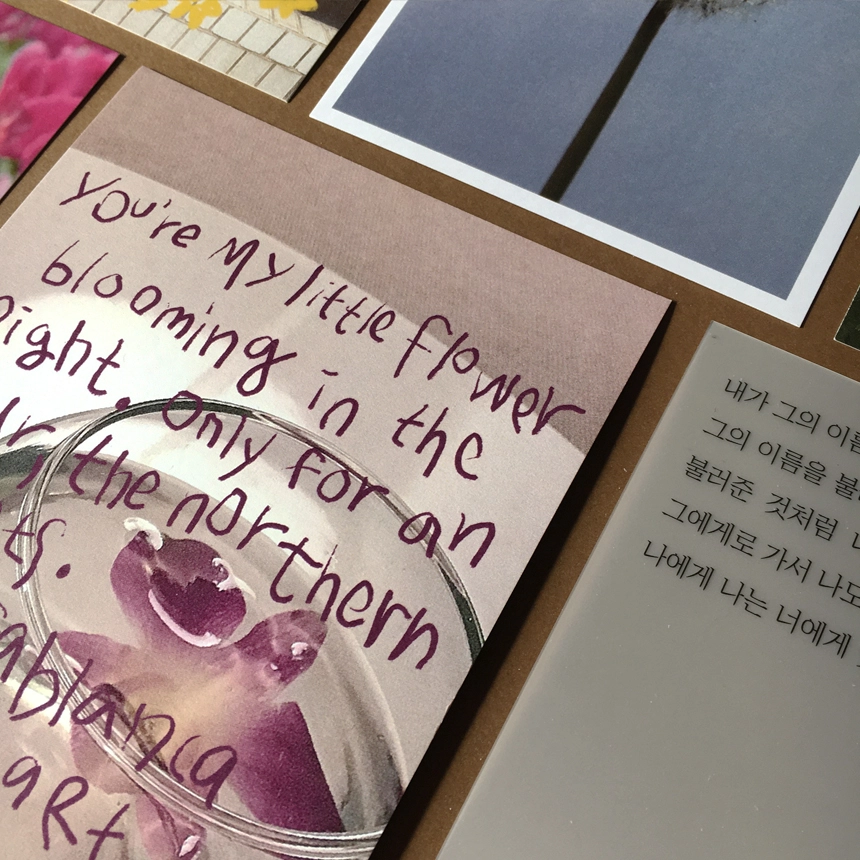 You're My little flower
blooming in the
night. only for an
the northern
ablanca
aRt
내가 그의 이름
그의 이름을 불
불러준 것처럼
그에게로 가서 나도
나에게 나는 너에게